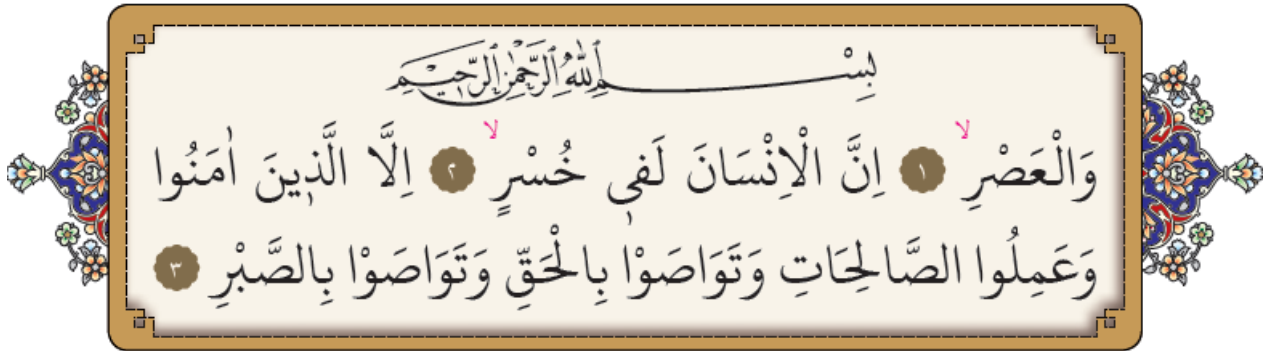 بِسْمِ اللّٰهِ الرَّحْمٰنِ الرَّحٖيمِ
وَالْعَصْرِۙ ﴿١﴾ اِنَّ الْاِنْسَانَ لَفٖى خُسْرٍۙ ﴿٢﴾ اِلَّا الَّذٖينَ اٰمَنُوا
وَعَمِلُوا الصَّالِحَاتِ وَتَوَاصَوْا بِالْحَقِّ وَتَوَاصَوْا بِالصَّبْرِ ﴿٣﴾